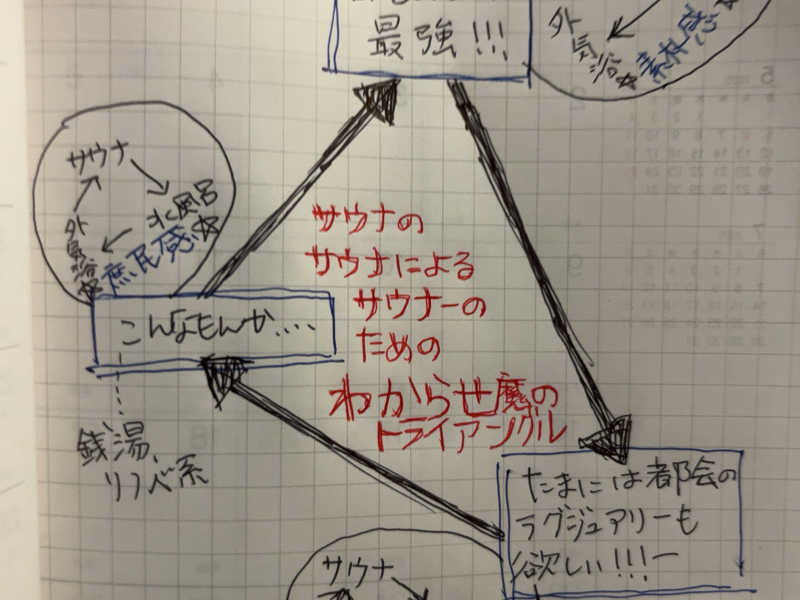 最強!!!
外
気
浴☆
素朴感☆
サウナ
水風呂
☆
外気浴☆
庶民感
サウナの
サウナによる
サウナーの
ための
わからせ魔の
トライアングル
こんなもんか....
銭湯、
リノベ系
たまには都会の
ラグジュアリーも
欲しい!!!ー
サウナ